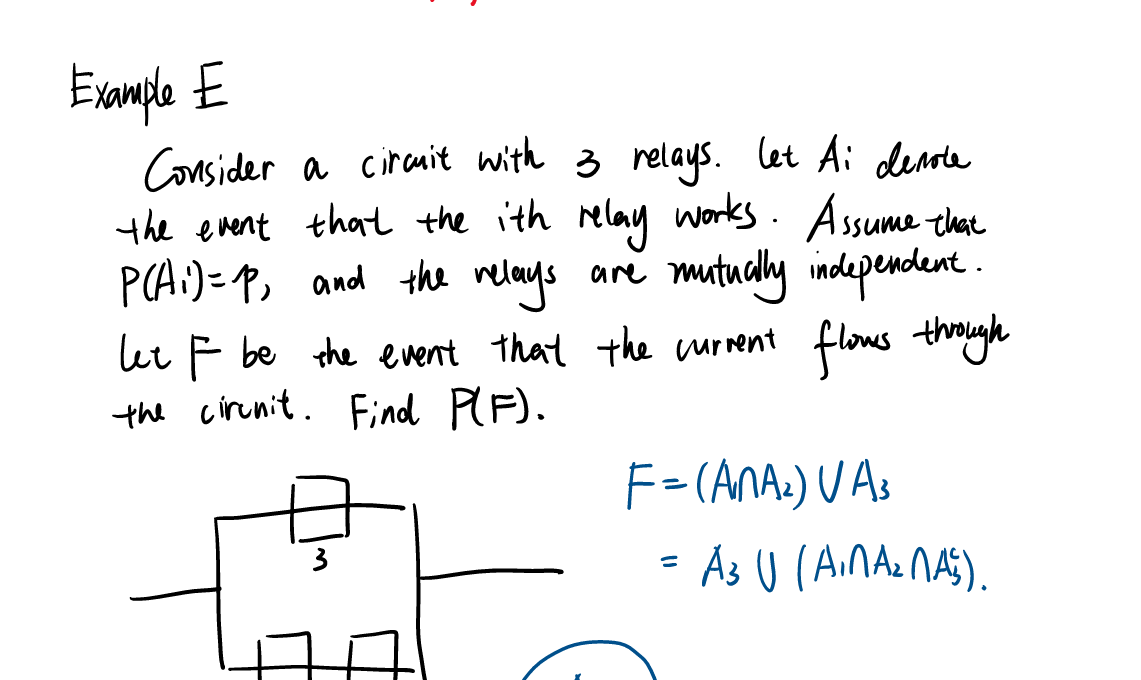 Example E
Consider a circuit with 3 relays. Let Ai denote
the event that the ith relay works. Assume that
P(Ai)=p, and the relays are mutually independent.
Let F be the event that the current flows through
the circuit. Find P(F).
F=(A₁∩A₂)∪A₃
= A₃ ∪ (A₁∩A₂∩A₃ᶜ).
3